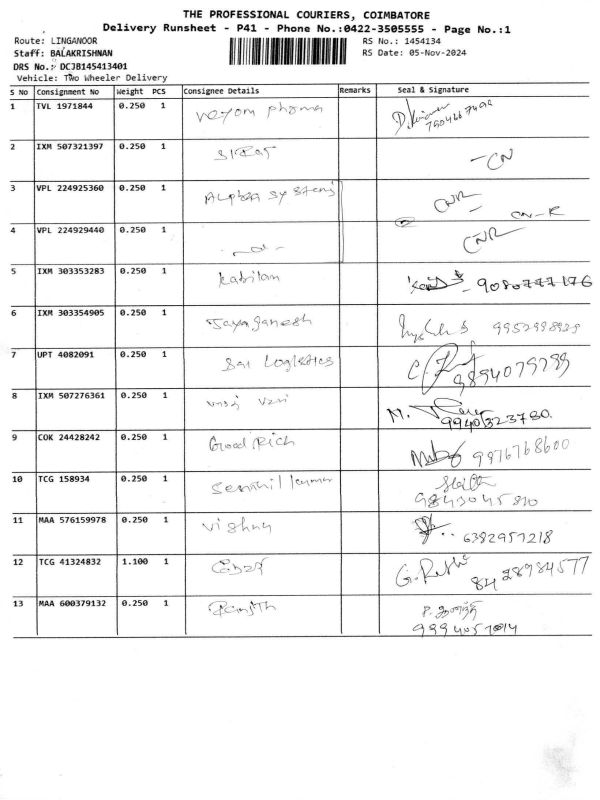 THE PROFESSIONAL COURIERS, COIMBATORE
Delivery Runsheet - P41 - Phone No.:0422-3505555 - Page No.:1
Route: LINGANOOR
RS No.: 1454134
Staff: BALAKRISHNAN
RS Date: 05-Nov-2024
DRS No.: DCJB145413401
Vehicle: Two Wheeler Delivery
S No Consignment No Weight PCS Consignee Details Remarks Seal & Signature
1 TVL 1971844 0.250 1 pharma
2 IXM 507321397 0.250 1 CN
3 VPL 224925360 0.250 1 Alpha Systems CNR CN-R
4 VPL 224929440 0.250 1 CNR
5 IXM 303353283 0.250 1 Kabilan 9080777176
6 IXM 303354905 0.250 1 Jayaganesh 9952998929
7 UPT 4082091 0.250 1 Sai Logistics 9894079299
8 IXM 507276361 0.250 1 M. 9940323780
9 COK 24428242 0.250 1 Good Rich 9976768600
10 TCG 158934 0.250 1 Senthil kumar 9843045810
11 MAA 576159978 0.250 1 Vishnu 6382957218
12 TCG 41324832 1.100 1 8428984577
13 MAA 600379132 0.250 1 Ranjith